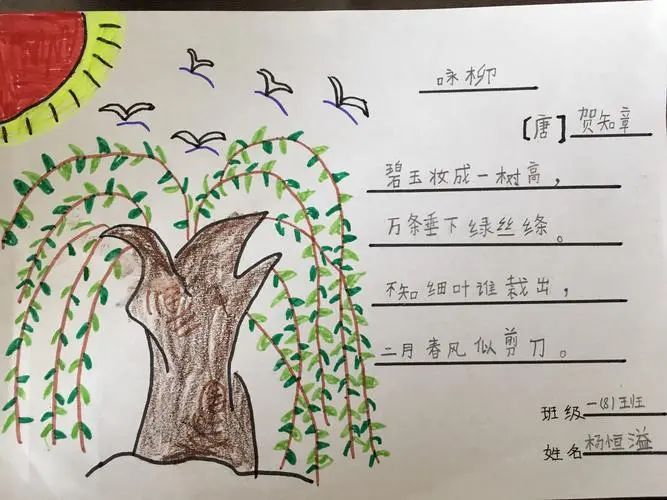 咏柳
[唐]贺知章
碧玉妆成一树高，
万条垂下绿丝绦。
不知细叶谁裁出，
二月春风似剪刀。
班级 一(8)班
姓名 杨恒溢